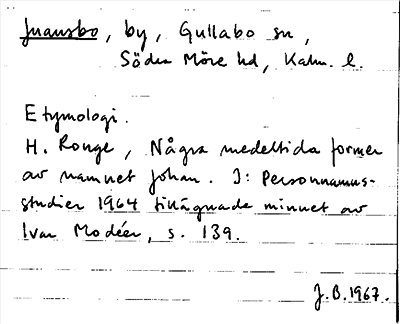 Juansbo, by, Gullabo sn,
Söder Möre hd, Kalm. l.
Etymologi.
H. Ronge, Några medeltida former
av namnet Johan. I: Personnamns-
studier 1964 tillägnade minnet av
Ivar Modéer, s. 139.
J.B. 1967.